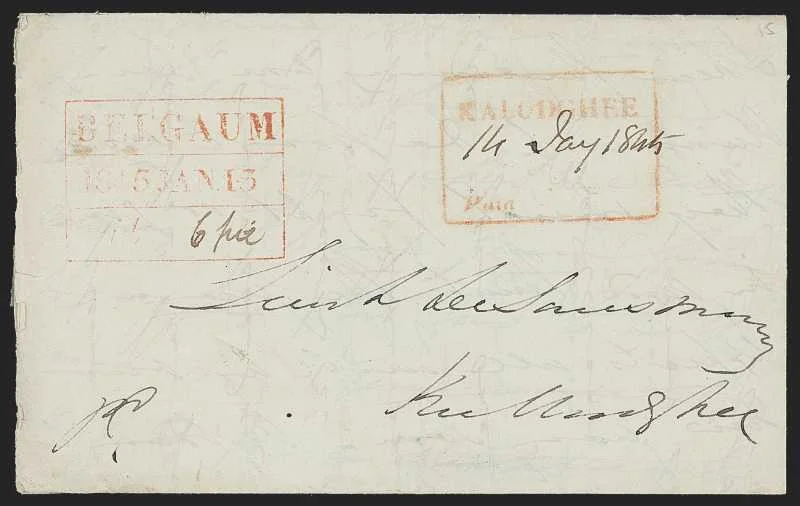 15
BELGAUM
1845 JAN. 13
6 pie
KALUDGHEE
14 Jay 1845
Paid
Lieut De Sausmarez
Kulludghee